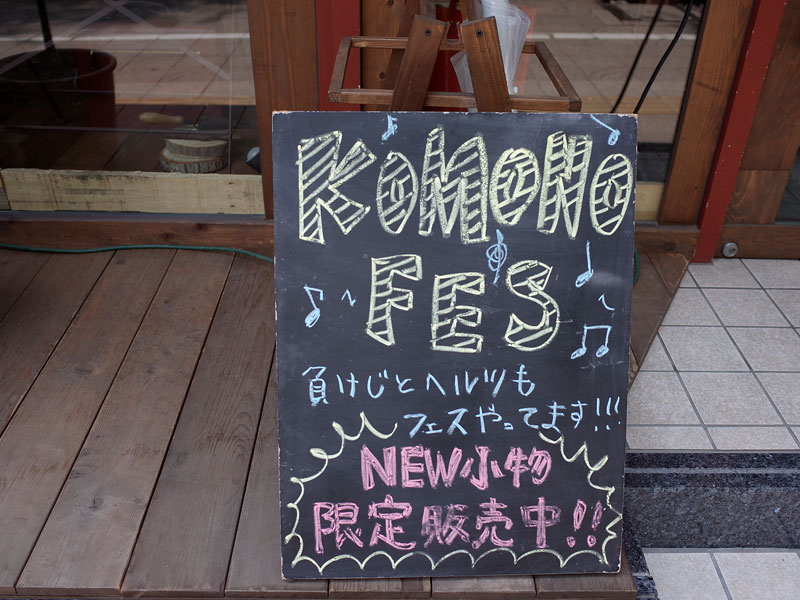 KOMONO
FES
負けじとヘルツも
フェスやってます!!!
NEW小物
限定販売中!!